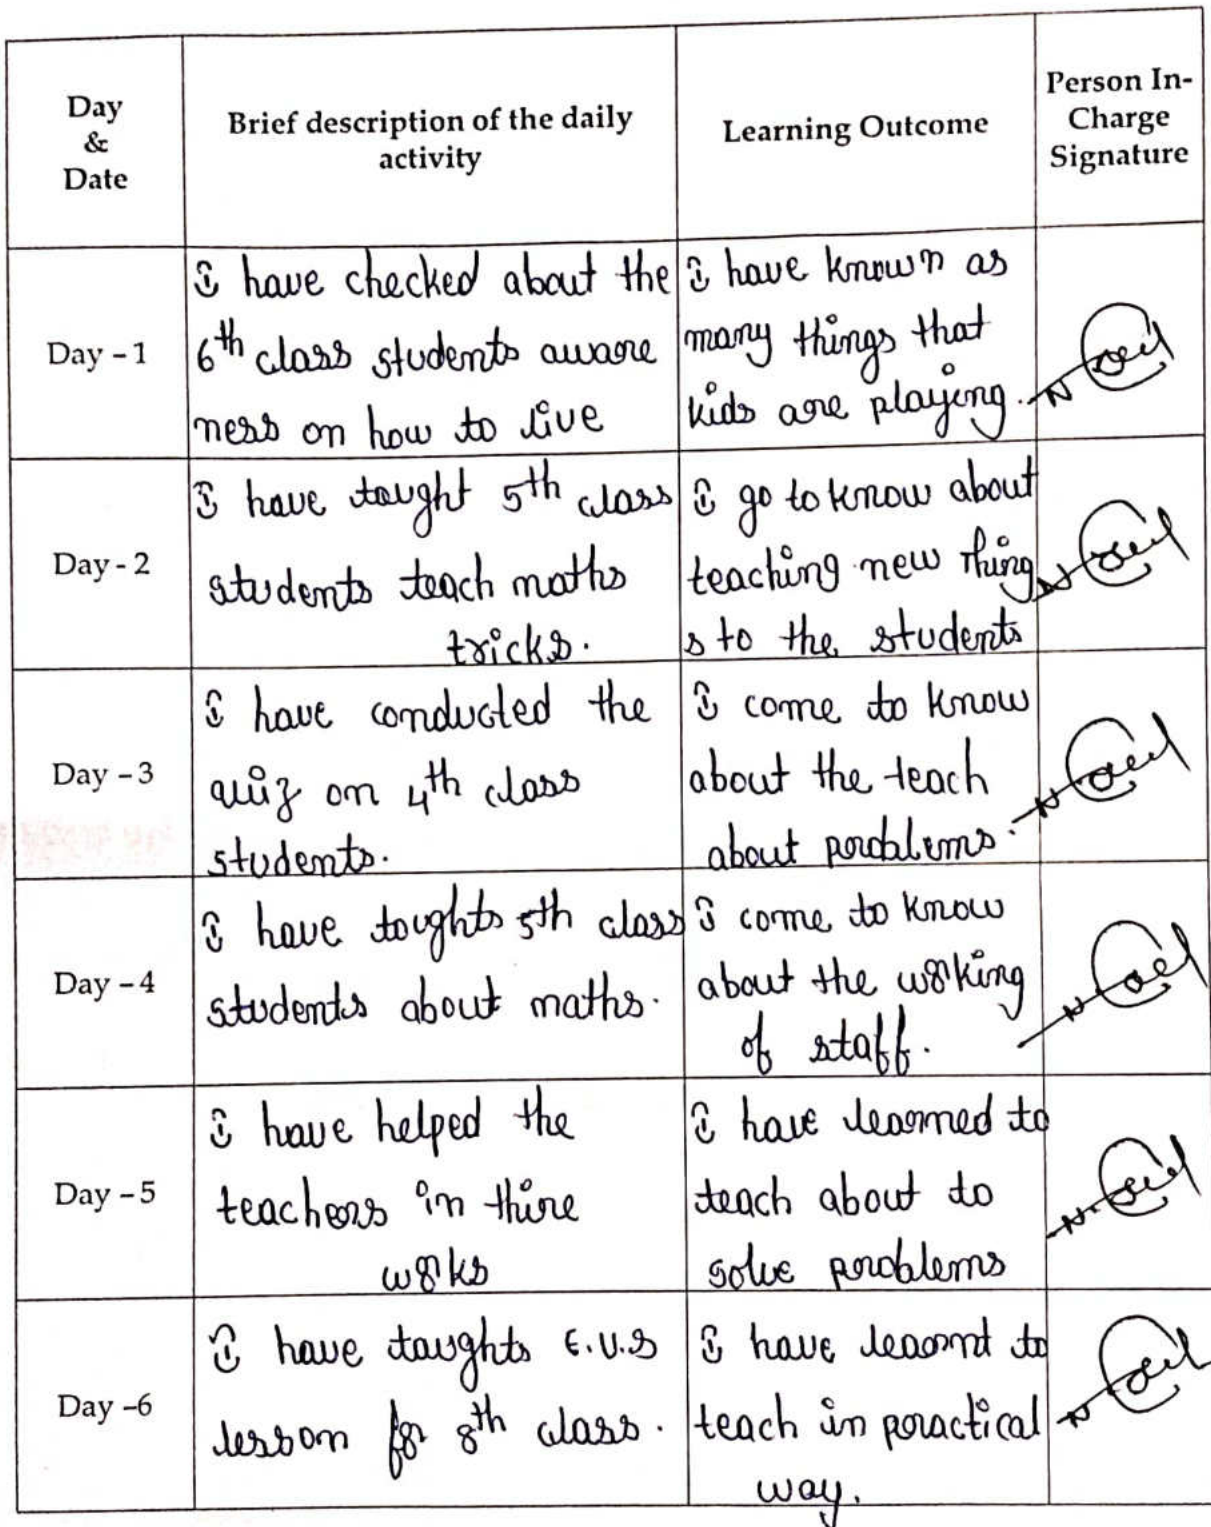 Day
&
Date
Brief description of the daily
activity
Learning Outcome
Person In-
Charge
Signature
Day – 1
I have checked about the
6th class students aware
ness on how to live
I have known as
many things that
kids are playing.
Day - 2
I have taught 5th class
students teach maths
tricks.
I go to know about
teaching new thing
s to the students
Day – 3
I have conducted the
quiz on 4th class
students.
I come to know
about the teach
about problems.
Day – 4
I have toughts 5th class
students about maths.
I come to know
about the working
of staff.
Day – 5
I have helped the
teachers in thire
works
I have learned to
teach about to
solve problems
Day –6
I have taughts E.V.S
lesson for 8th class.
I have learnt to
teach in practical
way.